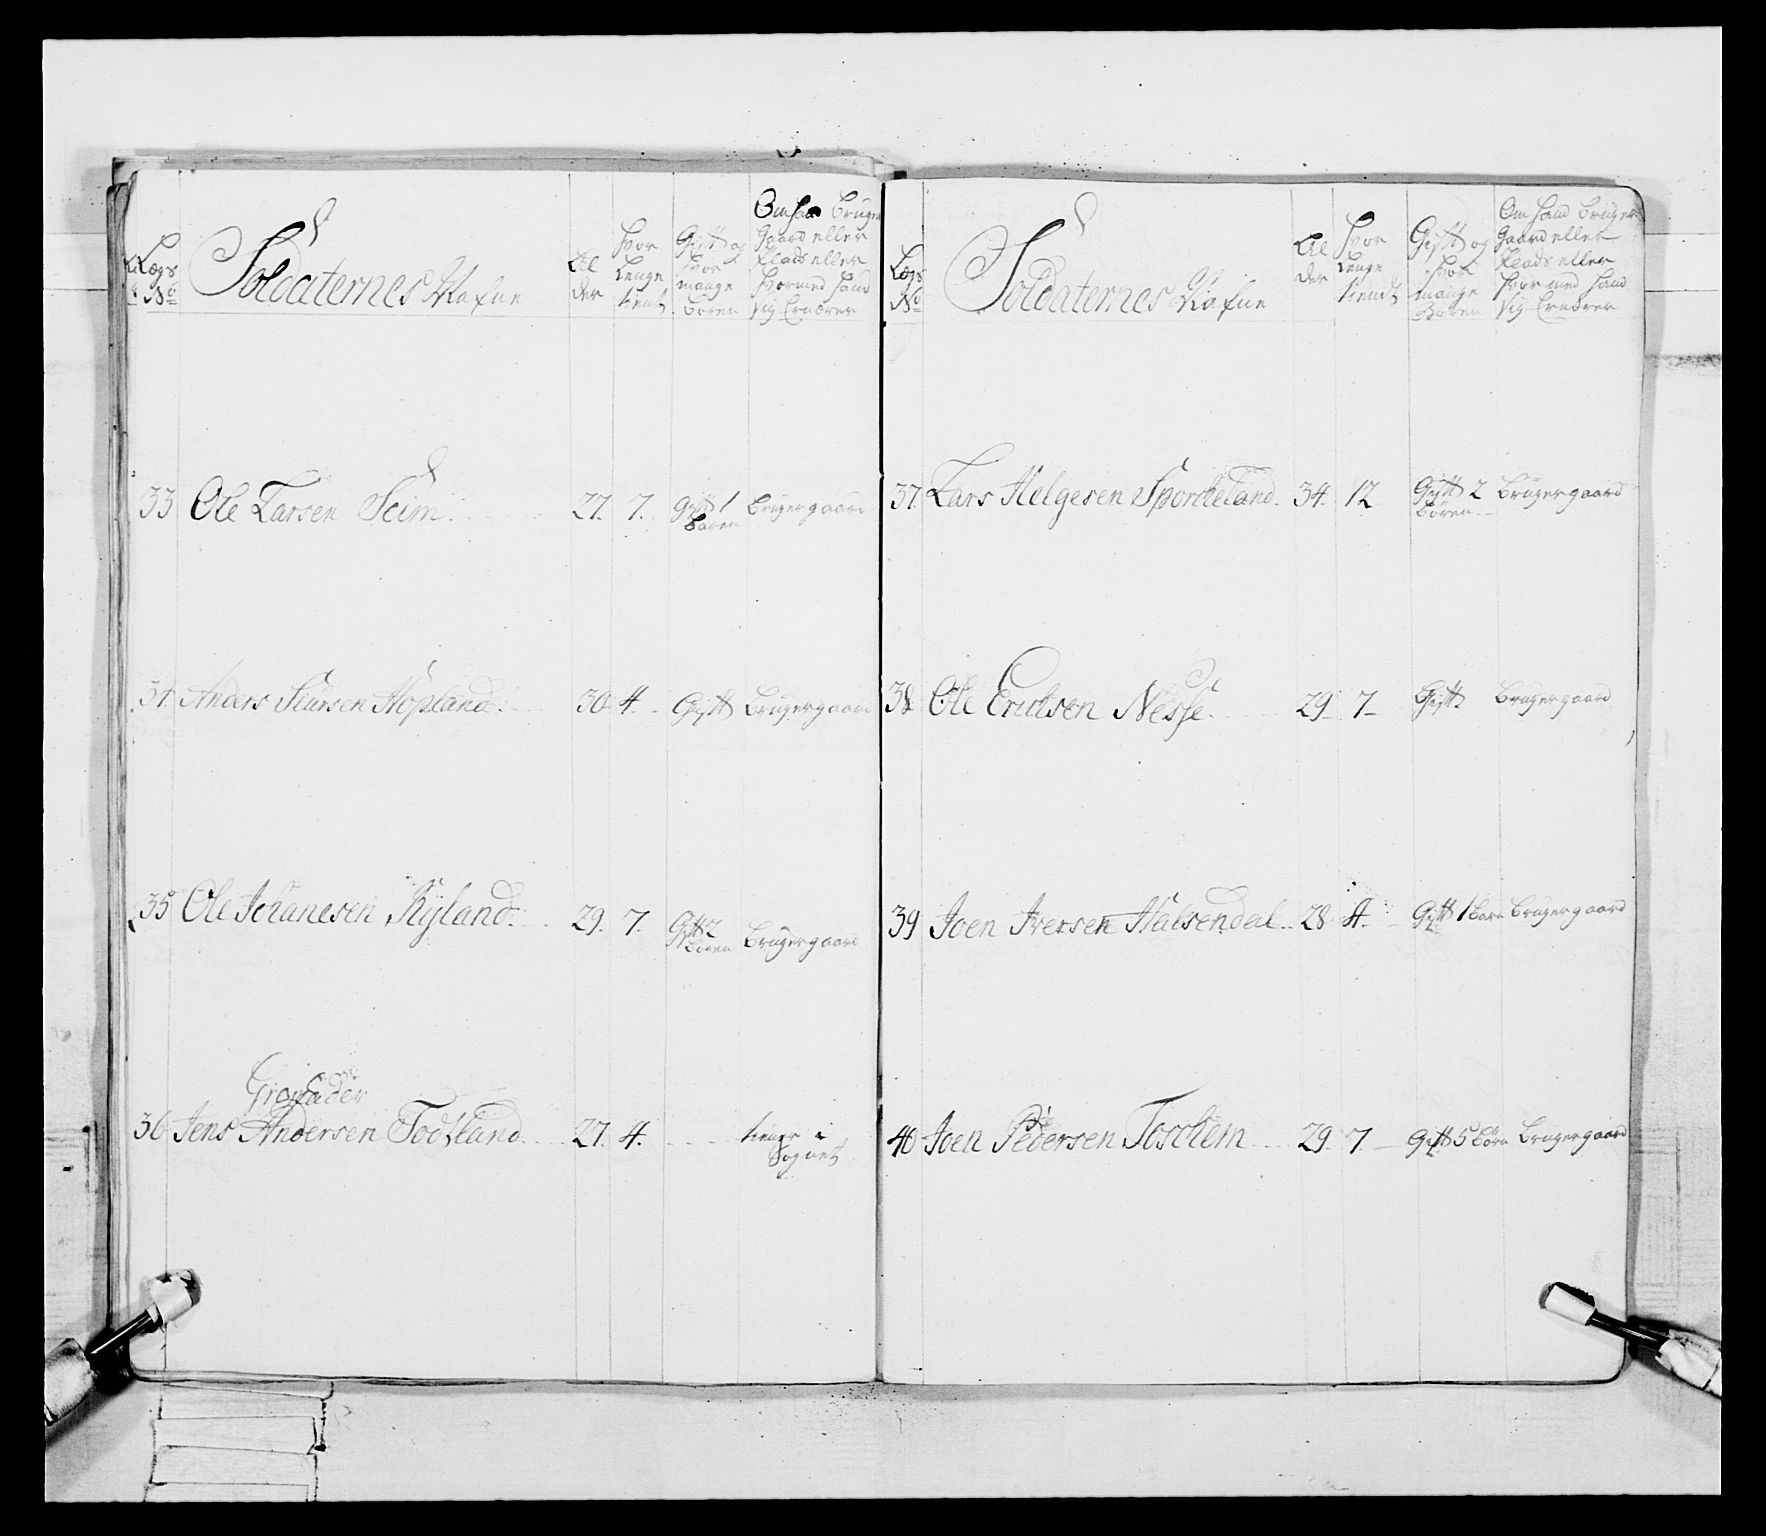 Lægs No Soldaternes Nafne Alder Hvor Lenge tient Gift og hvor mange Børen Om Hand Bruger Gaard eller Plads eller Hvormed Hand sig Ernærer
33 Ole Larsen Seim 27. 7. Gift 1 Børen Brugergaard
34 Anders Siursen Hopland 30 4. Gift Brugergaard
35 Ole Johanesen Ryland 29. 7. Gift 2 Børen Brugergaard
Grenader
36 Jens Andersen Todsland 27. 4. tiener i Sognet
Lægs No Soldaternes Nafne Alder Hvor Lenge tiendt Gift og Hvor mange Børen Om Hand Bruger Gaard eller Plads eller Hvor med Hand sig Ernærer
37. Lars Helgesen Sporcheland 34. 12 Gift 2 Børen Brugergaard
38 Ole Ericksen Nesse 29 7 Gift Brugergaard
39 Joen Iversen Halsendal 28 4 Gift 1 Barn Brugergaard
40 Joen Pedersen Toschem 29. 7. Gift 5 Børn Brugergaard